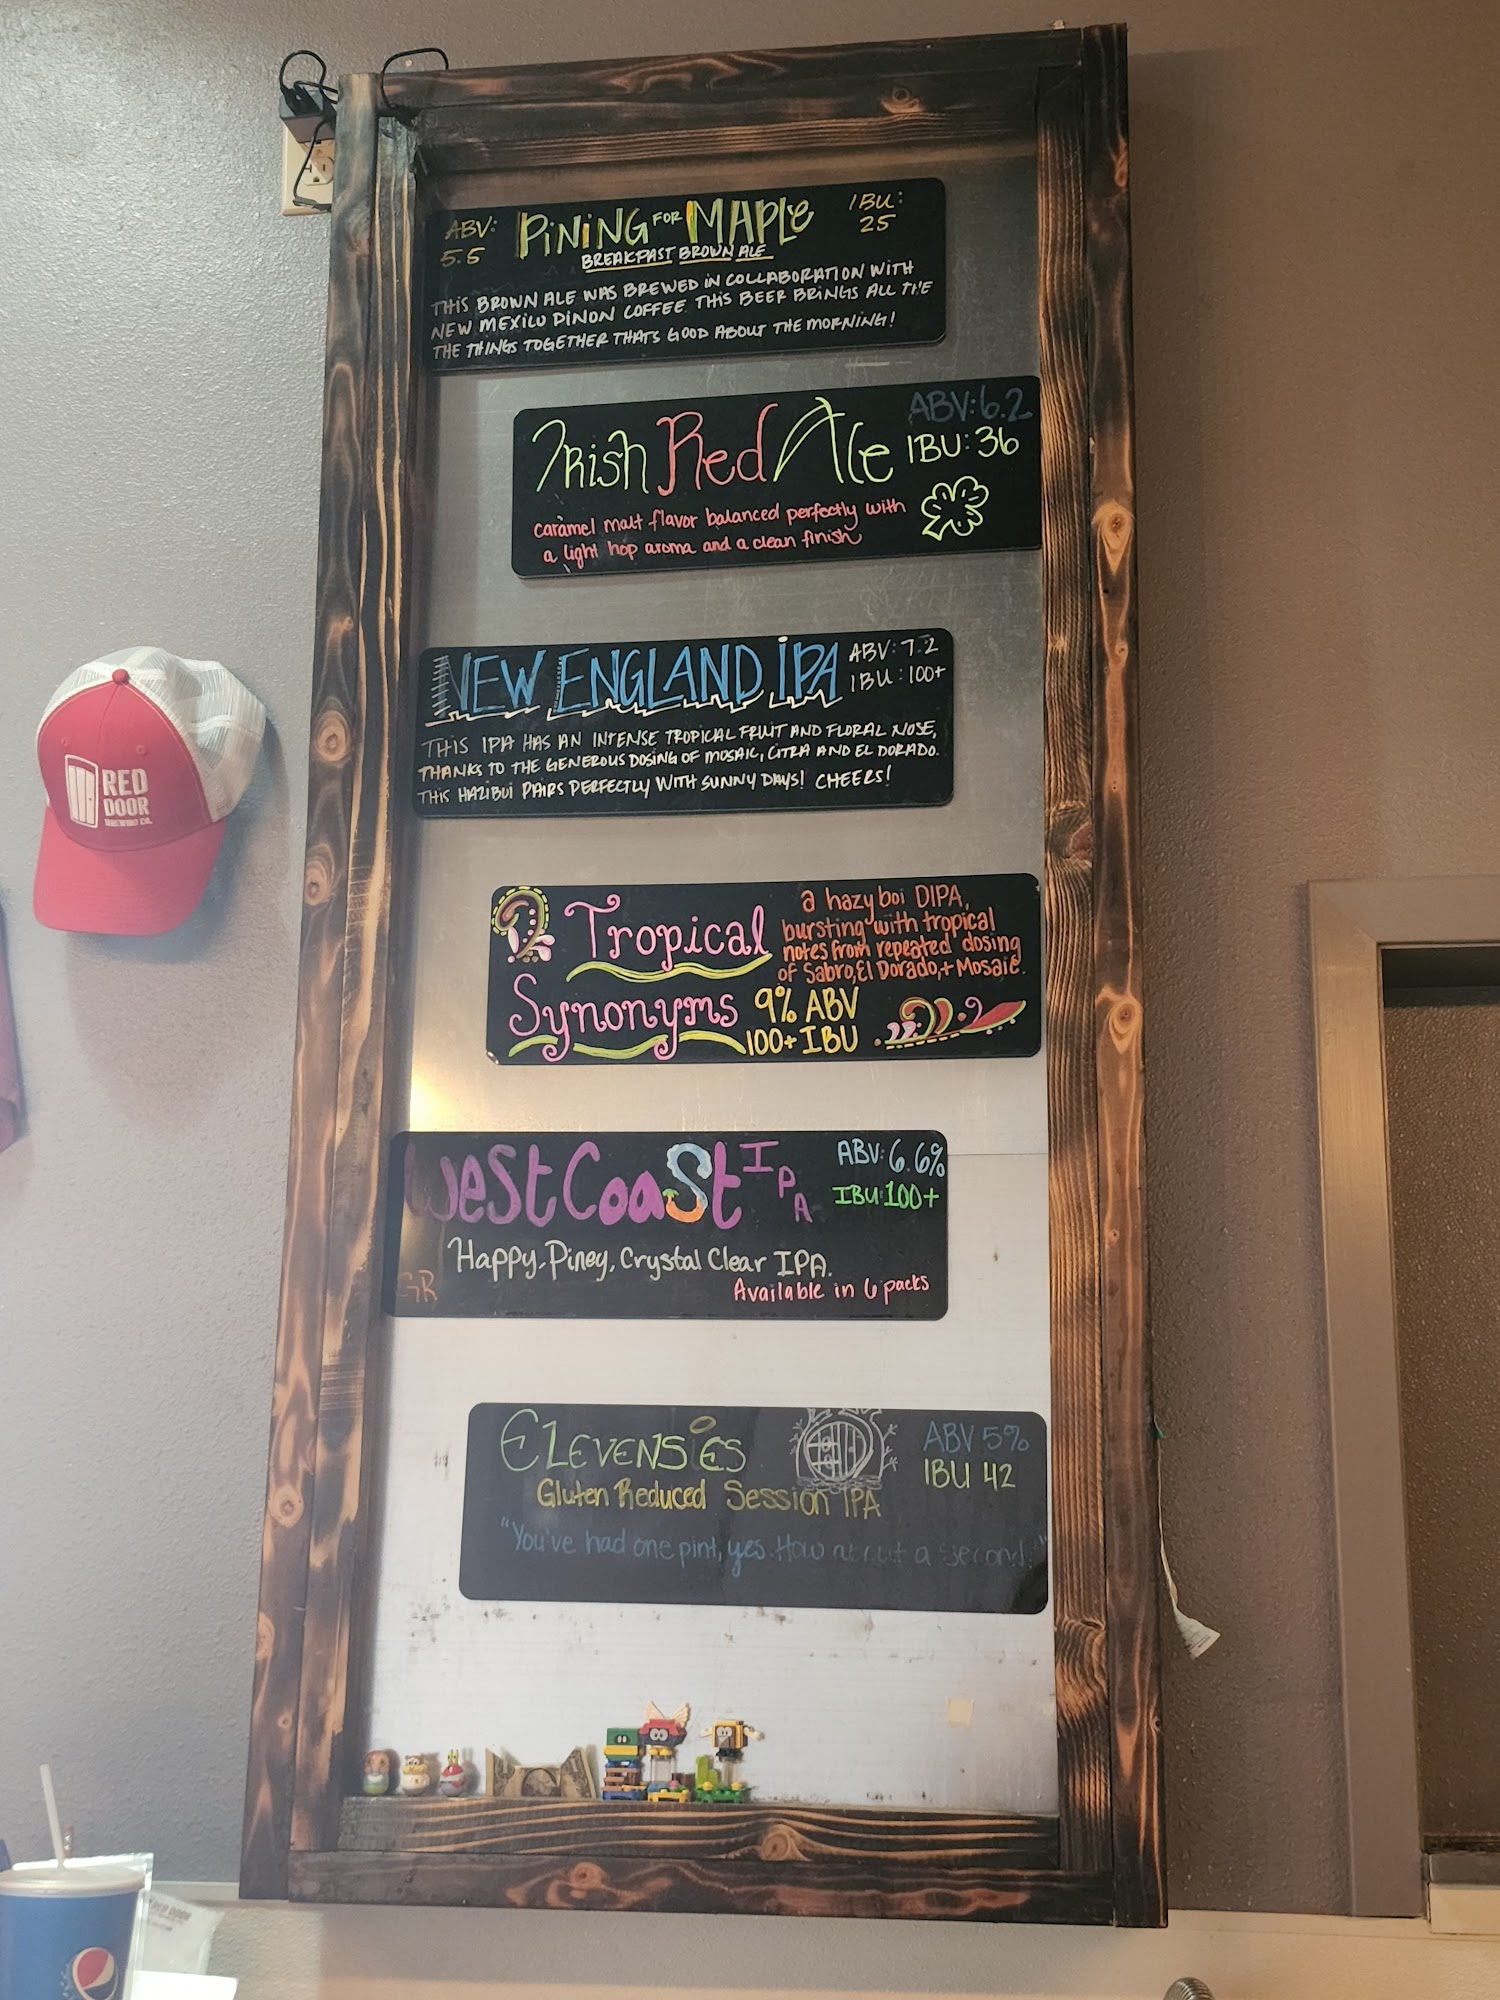 ABV:
5.5
PiNiNG FOR MAPLe
BREAKFAST BROWN ALE
IBU:
25
THIS BROWN ALE WAS BREWED IN COLLABORATION WITH
NEW MEXICO PINON COFFEE THIS BEER BRINGS ALL THE
THE THINGS TOGETHER THATS GOOD ABOUT THE MORNING!
Irish Red Ale
ABV: 6.2
IBU: 36
caramel malt flavor balanced perfectly with
a light hop aroma and a clean finish
NEW ENGLAND IPA
ABV: 7.2
IBU: 100+
THIS IPA HAS AN INTENSE TROPICAL FRUIT AND FLORAL NOSE,
THANKS TO THE GENEROUS DOSING OF MOSAIC, CITRA AND EL DORADO.
THIS HAZIBUI PAIRS PERFECTLY WITH SUNNY DAYS! CHEERS!
RED
DOOR
BREWING CO.
Tropical
Synonyms
a hazy boi DIPA,
bursting with tropical
notes from repeated dosing
of Sabro, El Dorado, + Mosaic.
9% ABV
100+ IBU
West Coast IPA
ABV: 6.6%
IBU: 100+
Happy, Piney, Crystal Clear IPA.
Available in 6 packs
GR
Elevensies
Gluten Reduced Session IPA
ABV 5%
IBU 42
"You've had one pint, yes. How about a second?"